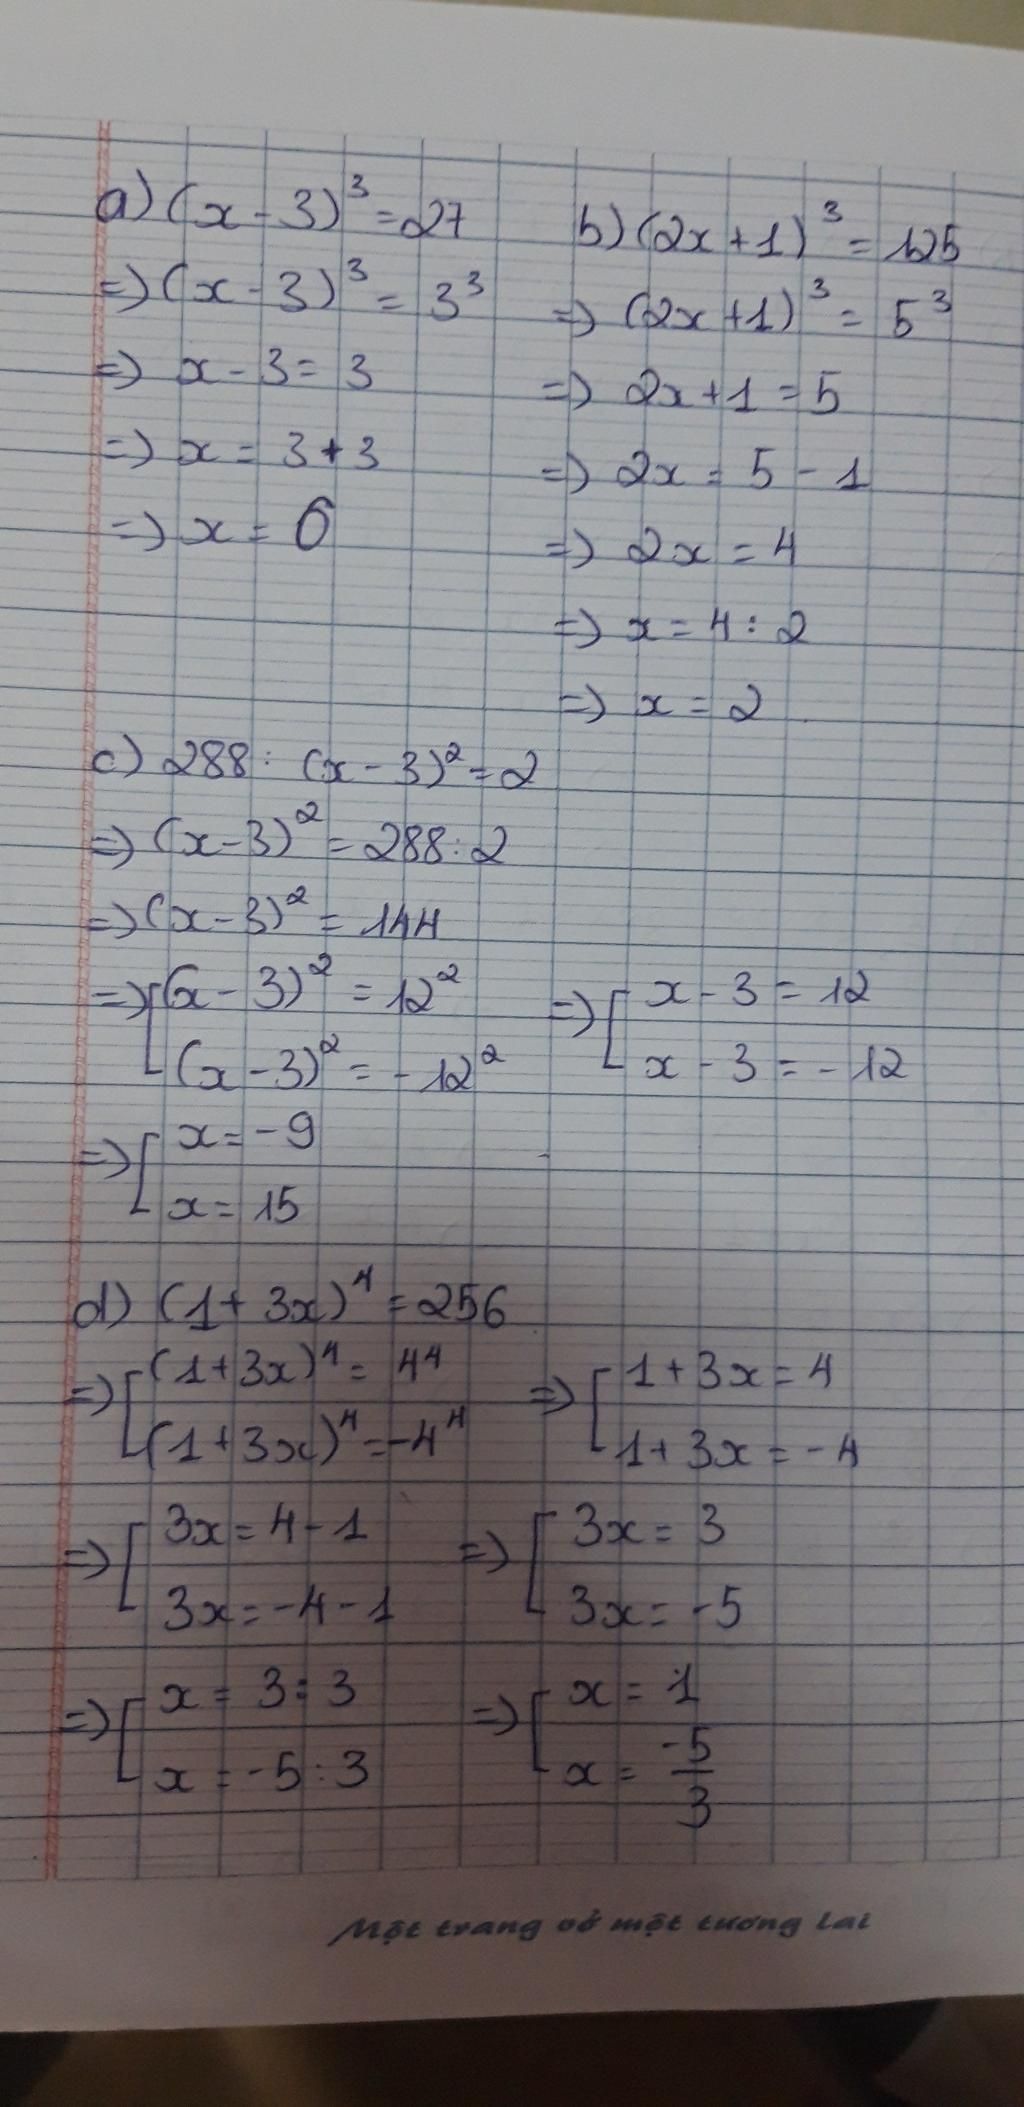 a) (x - 3)³ = 27
=> (x - 3)³ = 3³
=> x - 3 = 3
=> x = 3 + 3
=> x = 6
b) (2x + 1)³ = 125
=> (2x + 1)³ = 5³
=> 2x + 1 = 5
=> 2x = 5 - 1
=> 2x = 4
=> x = 4 : 2
=> x = 2
c) 288 : (x - 3)² = 2
=> (x - 3)² = 288 : 2
=> (x - 3)² = 144
=> [ (x - 3)² = 12² => [ x - 3 = 12
(x - 3)² = - 12² x - 3 = - 12
=> [ x = - 9
x = 15
d) (1 + 3x)⁴ = 256
=> [ (1 + 3x)⁴ = 4⁴ => [ 1 + 3x = 4
(1 + 3x)⁴ = -4⁴ 1 + 3x = - 4
=> [ 3x = 4 - 1 => [ 3x = 3
3x = -4 - 1 3x = -5
=> [ x = 3 : 3 => [ x = 1
x = -5 : 3 x = -5/3
Một trang vở một tương lai